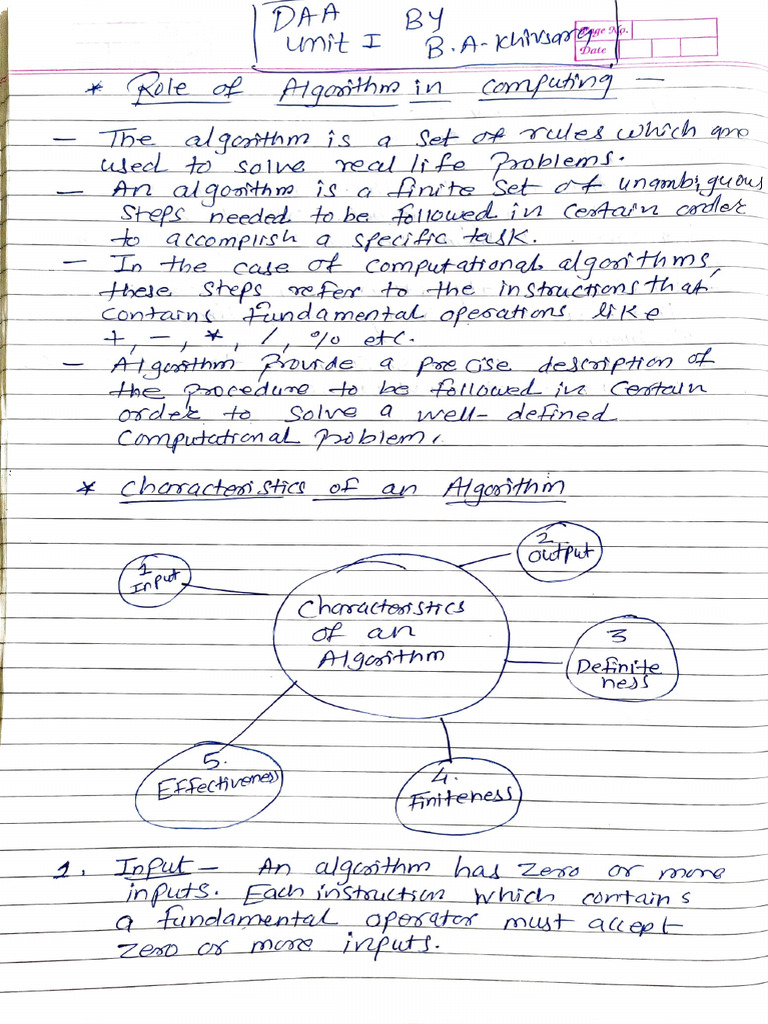 DAA BY
Unit I B.A. Khivsara
Page No.
Date
* Role of Algorithm in computing —
— The algorithm is a set of rules which are
used to solve real life problems.
— An algorithm is a finite set of unambiguous
steps needed to be followed in certain order
to accomplish a specific task.
— In the case of computational algorithms,
these steps refer to the instructions that
contains fundamental operations like
+, −, *, /, % etc.
— Algorithm provide a precise description of
the procedure to be followed in certain
order to solve a well-defined
computational problem.
* Characteristics of an Algorithm
1 Input
2 Output
Characteristics
of an
Algorithm
3
Definite
ness
5.
Effectiveness
4.
Finiteness
1. Input — An algorithm has zero or more
inputs. Each instruction which contains
a fundamental operator must accept
zero or more inputs.